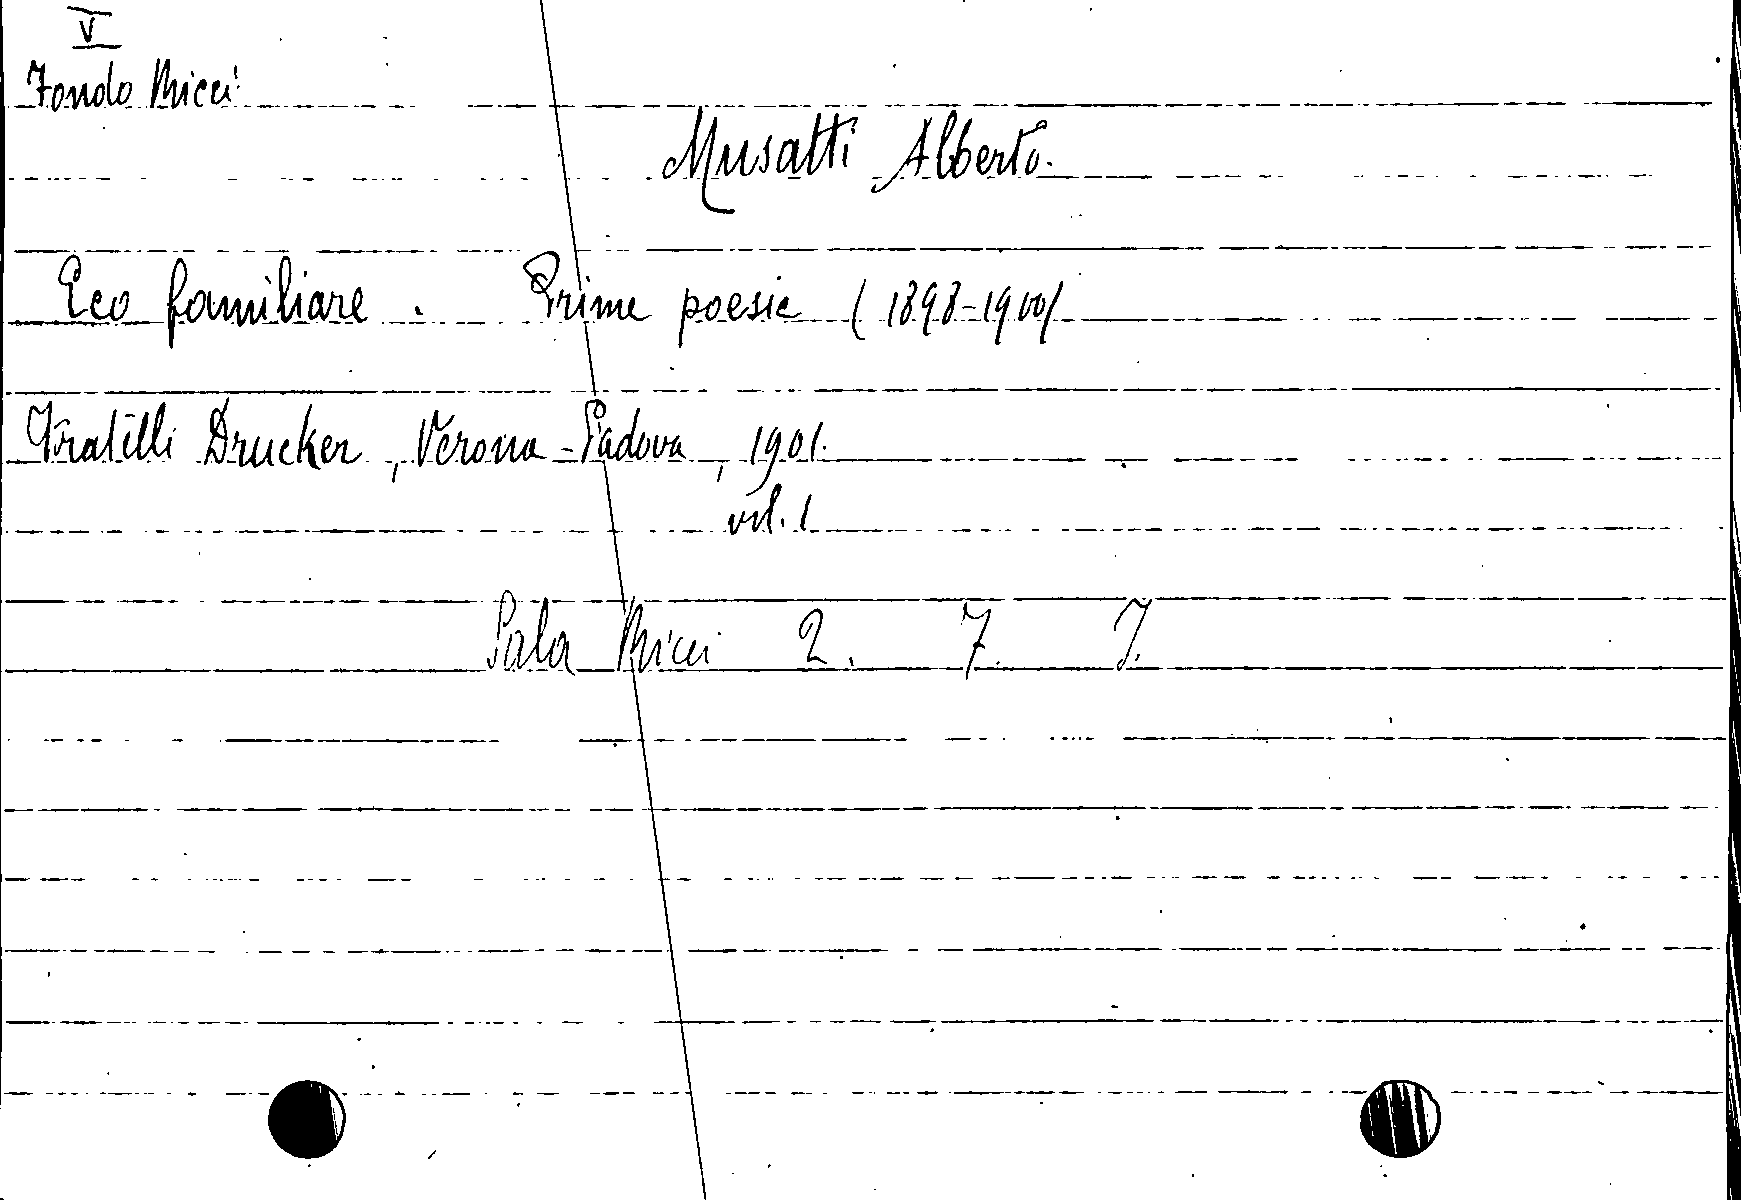 V
Fondo Ricci
Musatti Alberto.
Eco familiare. Prime poesie (1898-1900)
Fratelli Drucker, Verona-Padova, 1901.
vol. 1
Sala Ricci 2. 7. 7.